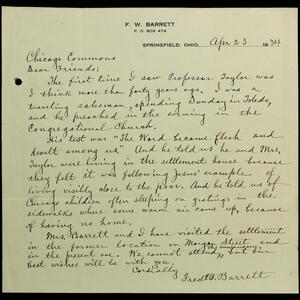 F. W. BARRETT
P. O. BOX 474
SPRINGFIELD, OHIO, Apr 23 1934
Chicago Commons
Dear Friends:
The first time I saw Professor Taylor was
I think more than forty years ago. I was a
traveling salesman, spending Sunday in Toledo,
and he preached in the evening in the
Congregational Church.
His text was "The Word became flesh and
dwelt among us," And he told us he and Mrs.
Taylor were living in the settlement house because
they felt it was following Jesus' example of
living visibly close to the poor. And he told us of
Chicago children often sleeping on gratings in the
sidewalks where some warm air came up, because
of having no home.
Mrs. Barrett and I have visited the settlement
in the former location on Morgan Street and
in the present one. We cannot attend the anniversary but our
best wishes will be with you.
Cordially
Fred W. Barrett